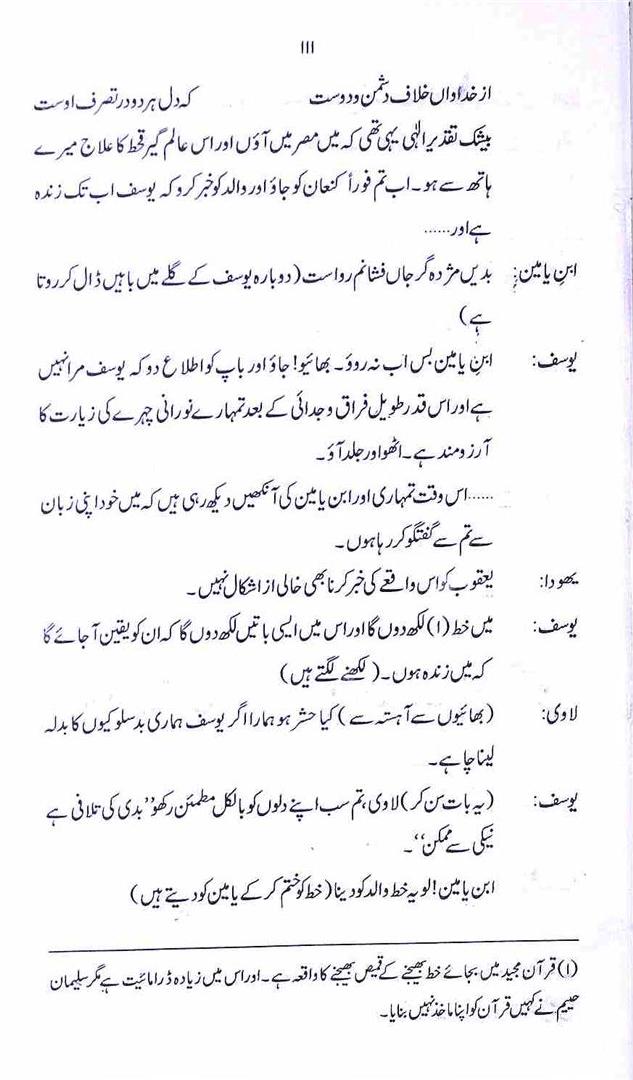 ١١١
از خدا واں خلاف دشمن و دوست کہ دل ہر دو در تصرف اوست
بیشک تقدیر الٰہی یہی تھی کہ میں مصر میں آؤں اور اس عالم گیر قحط کا علاج میرے
ہاتھ سے ہو۔ اب تم فوراً کنعان کو جاؤ اور والد کو خبر کرو کہ یوسف اب تک زندہ
ہے اور......
ابنِ یامین: بدیں مژدہ گر جاں فشانم رواست (دوبارہ یوسف کے گلے میں باہیں ڈال کر روتا
ہے)
یوسف: ابنِ یامین بس اب نہ روؤ۔ بھائیو! جاؤ اور باپ کو اطلاع دو کہ یوسف مرا نہیں
ہے اور اس قدر طویل فراق و جدائی کے بعد تمہارے نورانی چہرے کی زیارت کا
آرزومند ہے۔ اٹھو اور جلد آؤ۔
......اس وقت تمہاری اور ابن یامین کی آنکھیں دیکھ رہی ہیں کہ میں خود اپنی زبان
سے تم سے گفتگو کر رہا ہوں۔
یھودا: یعقوب کو اس واقعے کی خبر کرنا بھی خالی از اشکال نہیں۔
یوسف: میں خط (۱) لکھ دوں گا اور اس میں ایسی باتیں لکھ دوں گا کہ ان کو یقین آجائے گا
کہ میں زندہ ہوں۔ (لکھنے لگتے ہیں)
لاوی: (بھائیوں سے آہستہ سے) کیا حشر ہو ہمارا اگر یوسف ہماری بدسلوکیوں کا بدلہ
لینا چاہے۔
یوسف: (یہ بات سن کر) لاوی، تم سب اپنے دلوں کو بالکل مطمئن رکھو ’’بدی کی تلافی ہے
نیکی سے ممکن‘‘۔
ابن یامین! لو یہ خط والد کو دینا (خط کو ختم کر کے یامین کو دیتے ہیں)
(۱) قرآن مجید میں بجائے خط بھیجنے کے قمیص بھیجنے کا واقعہ ہے۔ اور اس میں زیادہ ڈرامائیت ہے مگر سلیمان
حیم نے کہیں قرآن کو اپنا ماخذ نہیں بنایا۔